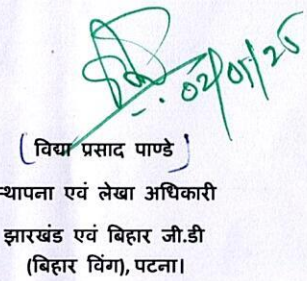 02/05/26
(विद्या प्रसाद पाण्डे)
स्थापना एवं लेखा अधिकारी
झारखंड एवं बिहार जी.डी
(बिहार विंग), पटना।